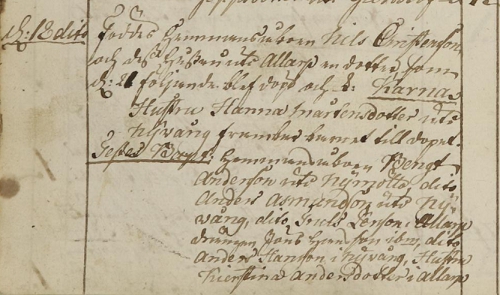 d: 12 dito föddes Hemmansåboen Nils Christensons
och dess Hustru uti Allarp en dotter som
d: 21 följande blef döpt och k: Karna
Hustru Hanna Mårtensdotter uti
Nÿvång frambar barnet till dopet.
Testes Hemmansåboen Bengt
Anderson uti dito
Anders Asmundson uti Nÿ-
vång, dito Truls Person i Allarp
drengen Jöns ibm, dito
Anders Hanson i Nÿvång, Hustru
Kierstina Andersdotter i Allarp